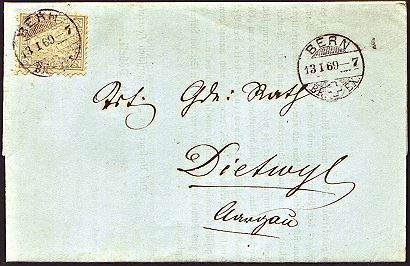 BERN
13 I 69–7
BERN
13 I 69–7
Tit: Gde: Rath
Dietwyl
Aargau